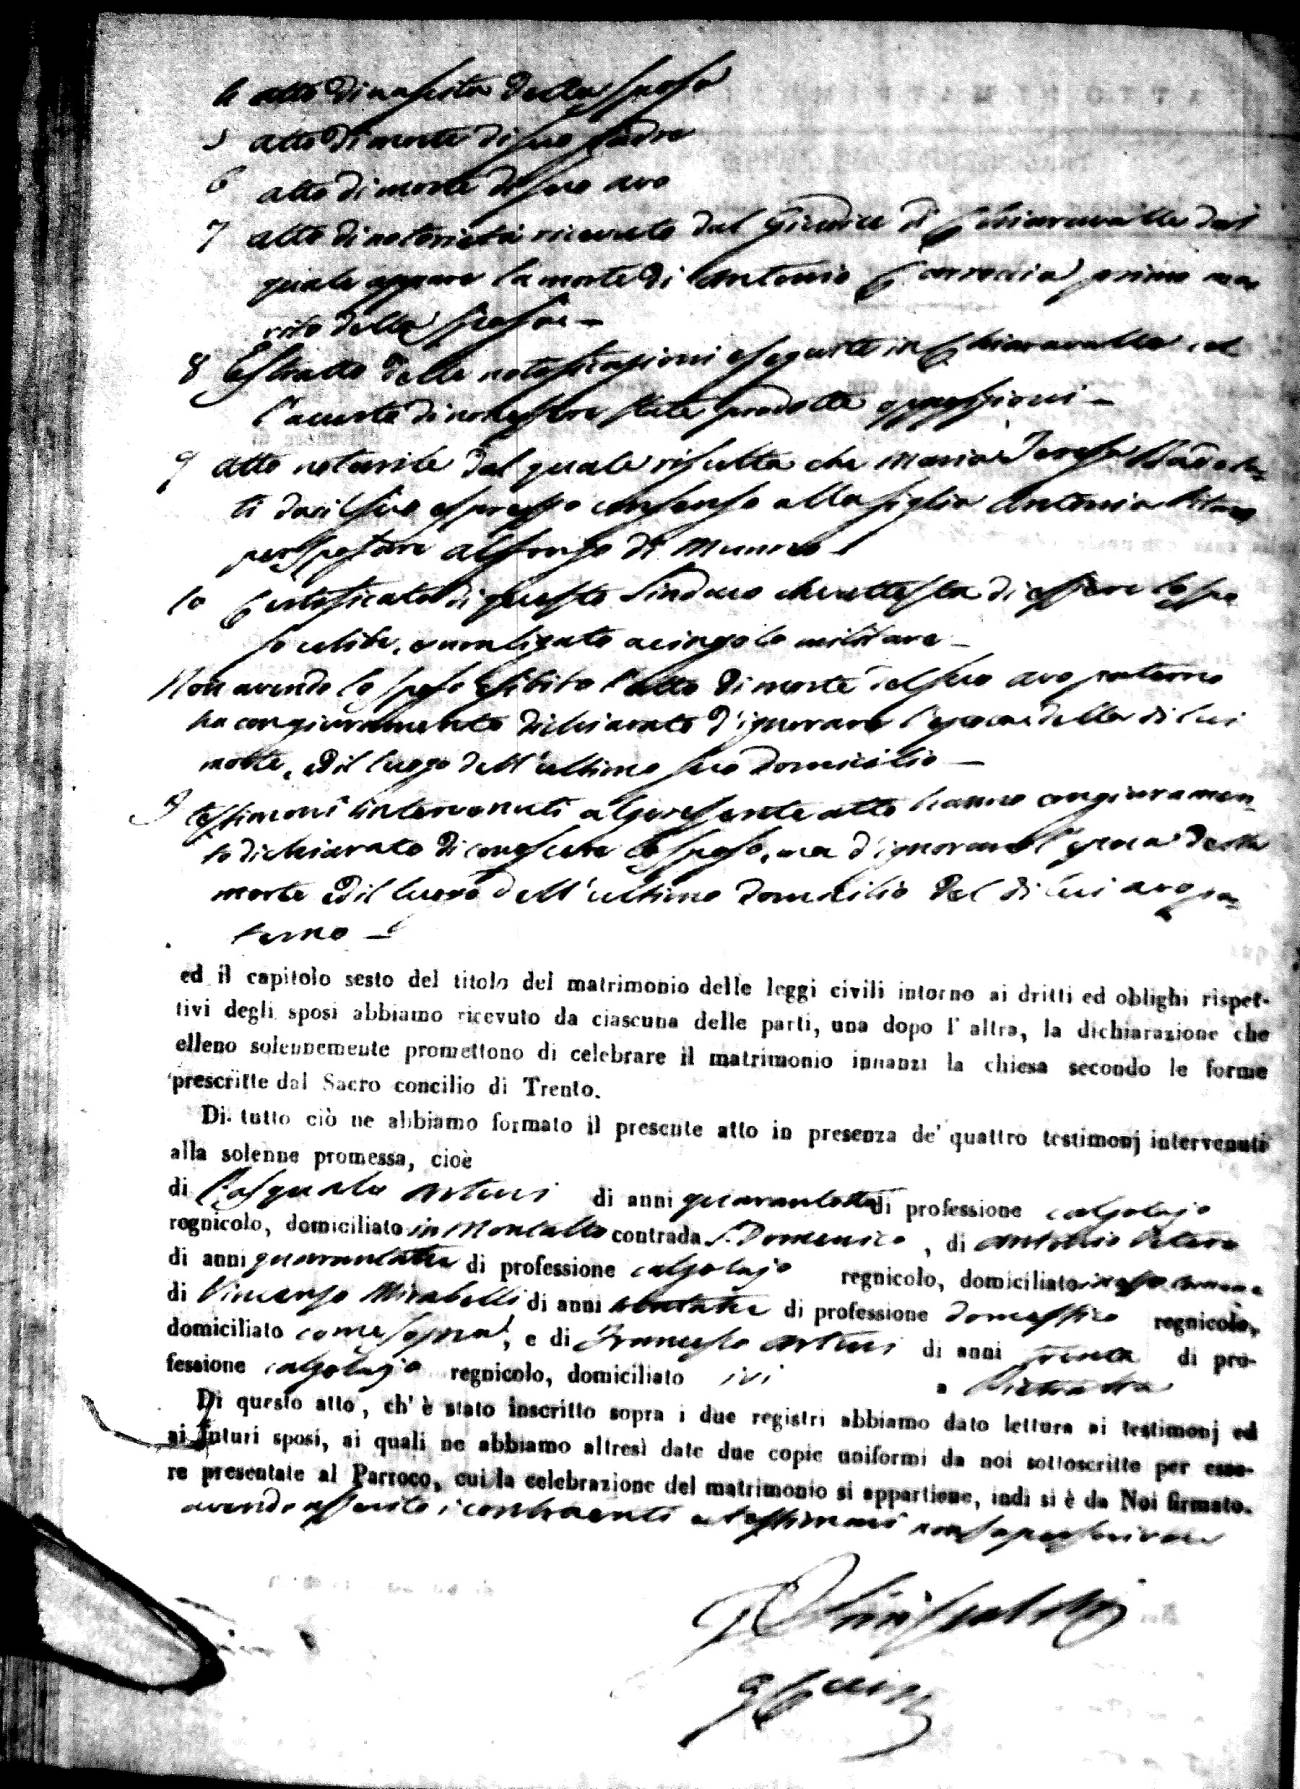 4 atto di nascita della sposa
5 atto di morte di suo padre
6 atto di morte di suo avo
7 atto di notorietà ricevuto dal Giudice di Chiaravalle dal
quale appare la morte di Antonio primo ma
rito della sposa -
8 Estratto delle notificazioni eseguite in Chiaravalle col
di non essere state prodotte opposizioni -
9 atto notarile dal quale risulta che Maria Teresa
ti dà il suo espresso consenso alla figlia Antonia
per sposare Alfonso di
10 Certificato di questo Sindaco che attesta di essere lo spo
so celibe, e non ligato a cingolo militare -
Non avendo lo sposo esibito l'atto di morte del suo avo paterno
ha con giuramento dichiarato d'ignorare l'epoca della di lui
morte, ed il luogo dell'ultimo suo domicilio -
I testimoni intervenuti al presente atto hanno con giuramen
to dichiarato di conoscere lo sposo, ma d'ignorare l'epoca della
morte ed il luogo dell'ultimo domicilio del di lui avo pa
terno -
ed il capitolo sesto del titolo del matrimonio delle leggi civili intorno ai dritti ed oblighi rispet-
tivi degli sposi abbiamo ricevuto da ciascuna delle parti, una dopo l'altra, la dichiarazione che
elleno solennemente promettono di celebrare il matrimonio innanzi la chiesa secondo le forme
prescritte dal Sacro concilio di Trento.
Di tutto ciò ne abbiamo formato il presente atto in presenza de' quattro testimonj intervenuti
alla solenne promessa, cioè
di Pasquale Arturi di anni quarantotto di professione calzolajo
regnicolo, domiciliato in Montalto contrada S. Domenico, di Antonio
di anni di professione calzolajo regnicolo, domiciliato
di Vincenzo Mirabelli di anni di professione domestico regnicolo,
domiciliato come sopra, e di Francesco Arturi di anni trenta di pro-
fessione calzolajo regnicolo, domiciliato ivi
Di questo atto, ch' è stato inscritto sopra i due registri abbiamo dato lettura ai testimonj ed
ai futuri sposi, ai quali ne abbiamo altresì date due copie uniformi da noi sottoscritte per esse-
re presentate al Parroco, cui la celebrazione del matrimonio si appartiene, indi si è da Noi firmato.
avendo asserito i contraenti e testimoni non saper scrivere